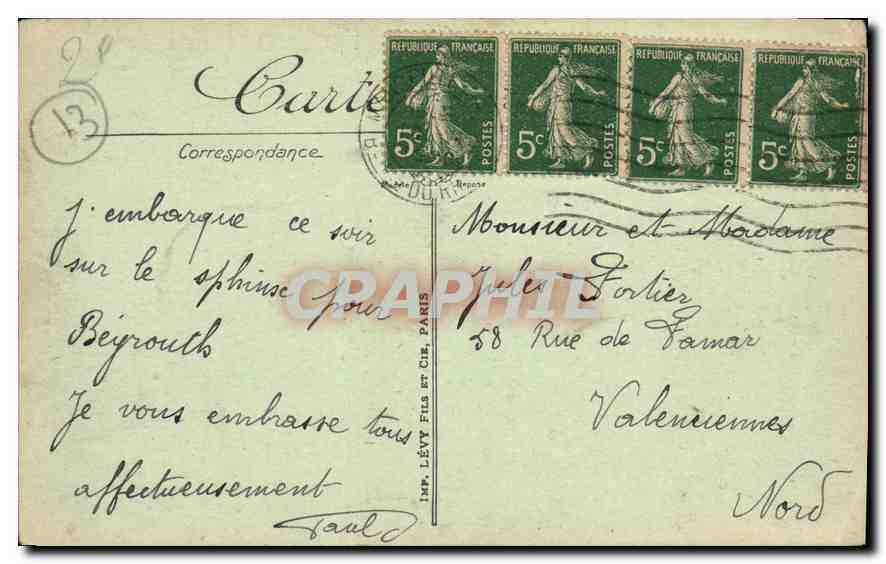 2e
13
Carte
Correspondance
RÉPUBLIQUE FRANÇAISE
5c
POSTES
RÉPUBLIQUE FRANÇAISE
5c
POSTES
RÉPUBLIQUE FRANÇAISE
5c
POSTES
RÉPUBLIQUE FRANÇAISE
5c
POSTES
DU RH
j'embarque ce soir
sur le sphinse pour
Béyrouth
Je vous embrasse tous
affectueusement
Paul
IMP. LÉVY FILS ET CIE, PARIS
Monsieur et Madame
Jules Fortier
58 Rue de Famar
Valenciennes
Nord
CRAPHIL